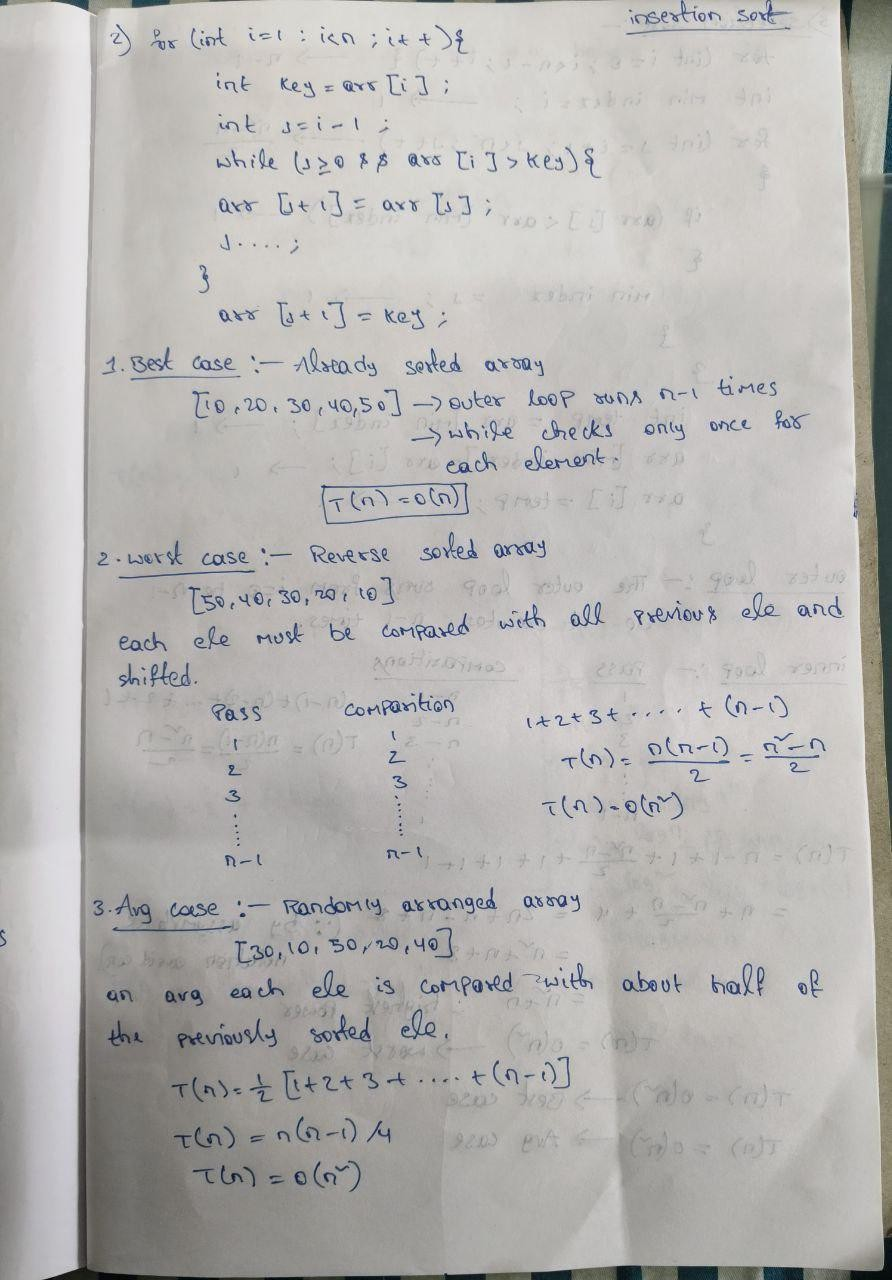 insertion sort
2) for (int i=1 : i<n ; i++){
int key = arr [i] ;
int j=i-1 ;
while (j≥0 && arr [i] > key){
arr [j+1] = arr [j] ;
j.... ;
}
arr [j+1] = key ;
1. Best case :- Already sorted array
[10, 20, 30, 40, 50] → outer loop runs n-1 times
→ while checks only once for
each element.
T(n) = O(n)
2. worst case :- Reverse sorted array
[50, 40, 30, 20, 10]
each ele must be compared with all previous ele and
shifted.
Pass comparition
1 1
2 2
3 3
..... .....
n-1 n-1
1+2+3+ .... + (n-1)
T(n) = n(n-1)/2 = n²-n/2
T(n) = O(n²)
3. Avg case :- Randomly arranged array
[30, 10, 50, 20, 40]
an avg each ele is compared with about half of
the previously sorted ele.
T(n) = 1/2 [1+2+3+ .... +(n-1)]
T(n) = n(n-1) /4
T(n) = O(n²)